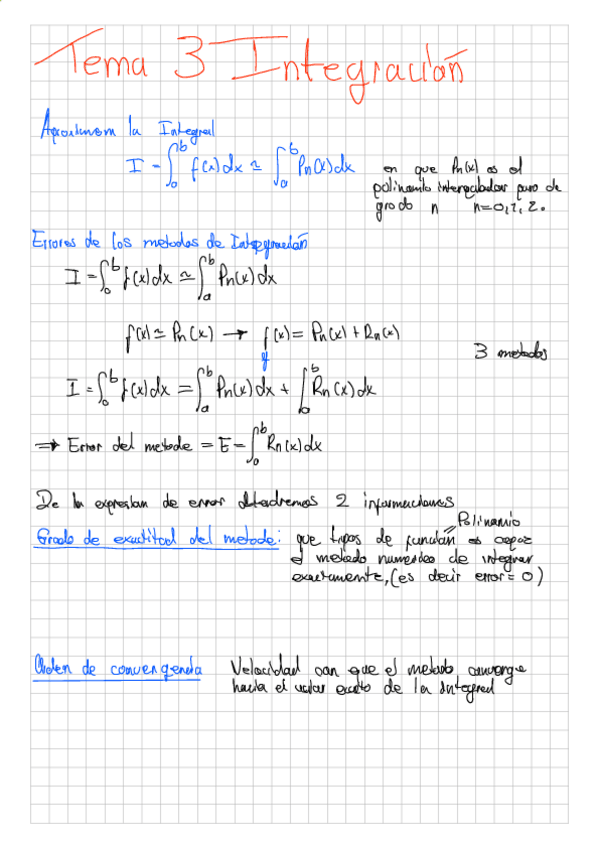 Tema 3 Integración
Aproximam la Integral
I = ∫_a^b f(x)dx ≃ ∫_a^b Pn(x)dx
en que Pn(x) es el
polinomio interpolador para de
grado n n=0,1,2.
Errores de los metodos de Integración
I = ∫_a^b f(x)dx ≃ ∫_a^b Pn(x)dx
f(x) ≃ Pn(x) → f(x) = Pn(x) + Rn(x)
3 metodos
I = ∫_a^b f(x)dx = ∫_a^b Pn(x)dx + ∫_a^b Rn(x)dx
⇒ Error del metodo = E = ∫_a^b Rn(x)dx
De la expresion de error obtendremos 2 informaciones
Polinomio
Grado de exactitud del metodo: que tipos de función es capaz
el metodo numerico de integrar
exactamente, (es decir error = 0)
Orden de convergencia Velocidad con que el metodo converge
hacia el valor exacto de la integral